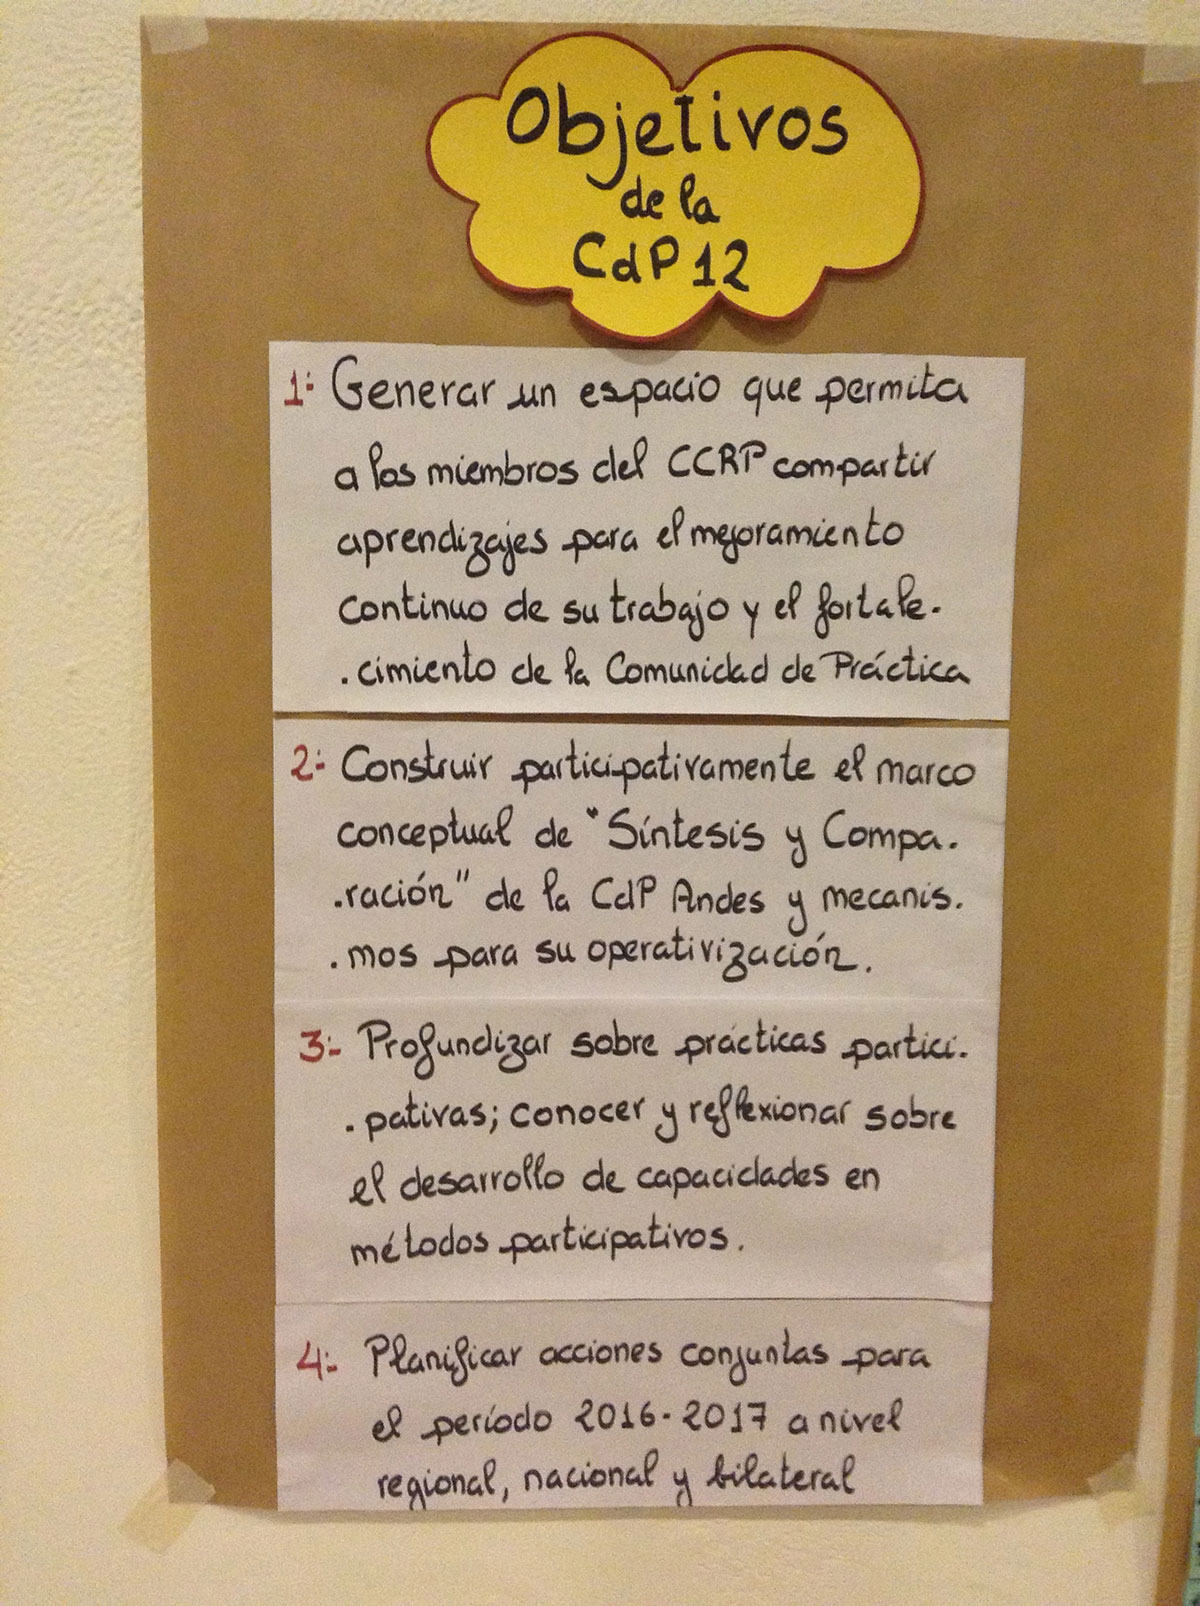 Objetivos
de la
CdP 12
1:- Generar un espacio que permita
a los miembros del CCRP compartir
aprendizajes para el mejoramiento
continuo de su trabajo y el fortale.
.cimiento de la Comunidad de Práctica
2:- Construir participativamente el marco
conceptual de "Síntesis y Compa.
.ración" de la CdP Andes y mecanis.
.mos para su operativización.
3:- Profundizar sobre prácticas partici.
.pativas; conocer y reflexionar sobre
el desarrollo de capacidades en
métodos participativos.
4:- Planificar acciones conjuntas para
el período 2016-2017 a nivel
regional, nacional y bilateral